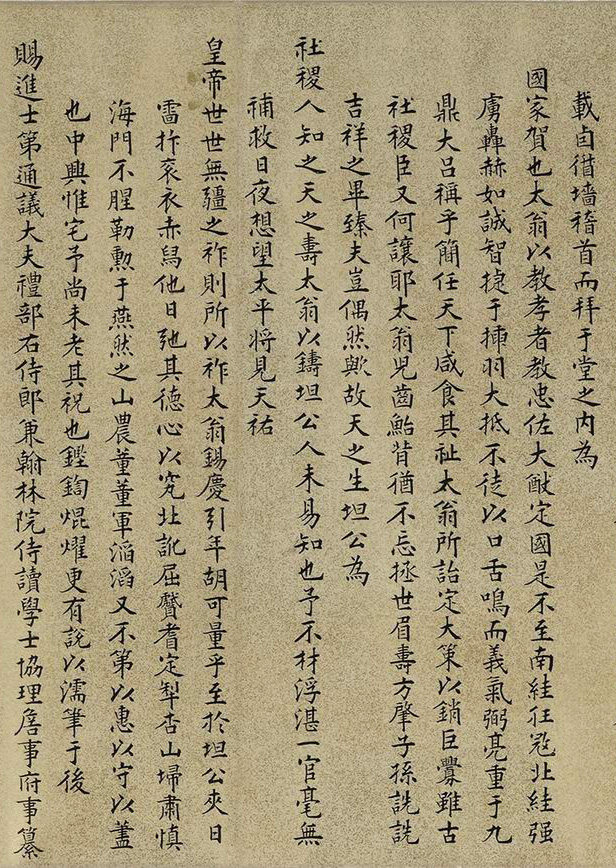 載卣偕墻稽首而拜于堂之內為
國家賀也太翁以教孝者教忠佐大猷定國是不至南絓狂寇北絓强
虜轟赫如誠智捷于揷羽大抵不徒以口舌鳴而義氣弼亮重于九
鼎大呂稱乎簡任天下咸食其祉太翁所詒定大策以銷巨釁雖古
社稷臣又何讓耶太翁兒齒鮐背猶不忘拯世眉壽方肇子孫詵詵
吉祥之畢臻夫豈偶然歟故天之生坦公為
社稷人知之天之壽太翁以鑄坦公人未易知也予不材浮湛一官毫無
補救日夜想望太平將見天祐
皇帝世世無疆之祚則所以祚太翁錫慶引年胡可量乎至於坦公夾日
雷抃袞衣赤舄他日弛其德心以究北訛屈贒耆定犁杏山埽肅慎
海門不腥勒勲于燕然之山農董董軍滔滔又不第以惠以守以蓋
也中興惟宅予尚未老其祝也鏗鍧焜燿更有說以濡筆于後
賜進士第通議大夫禮部右侍郎兼翰林院侍讀學士協理詹事府事纂